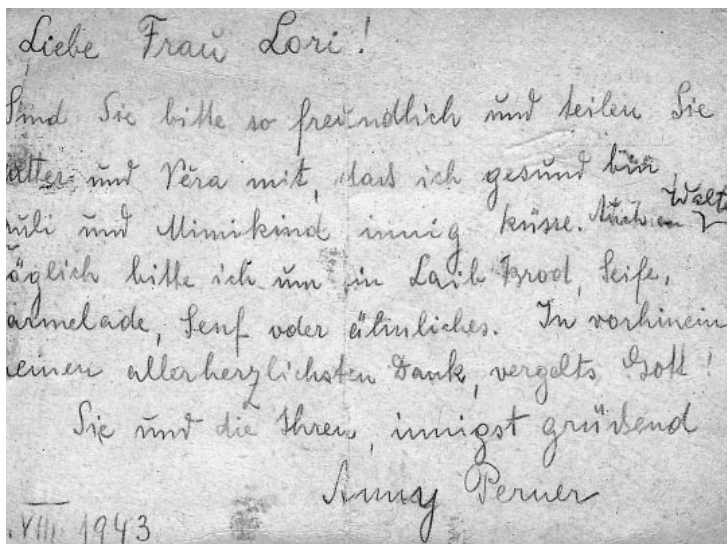 Liebe Frau Lori!
Sind Sie bitte so freundlich und teilen Sie
utter und Véra mit, dass ich gesund bin,
ruli und Mimikind innig küsse. Auch an Walt
öglich bitte ich um ein Laib Brod, Seife,
armelade, Senf oder älinliches. In vorhinein
einen allerherzlichsten Dank, vergelts Gott!
Sie und die Ihren, innigst grüssend
Anny Perner
.VIII. 1943